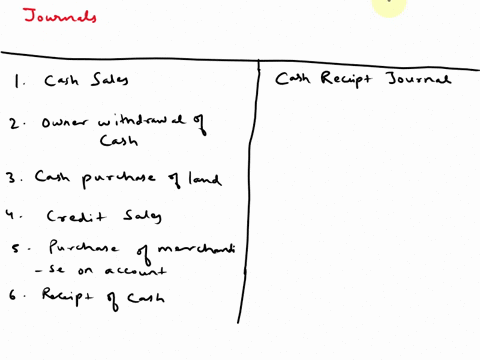 Journals
1. Cash Sales
Cash Receipt Journal
2. Owner withdrawal of
Cash
3. Cash purchase of land
4. Credit Sales
5. Purchase of merchandi
-se on account
6. Receipt of Cash